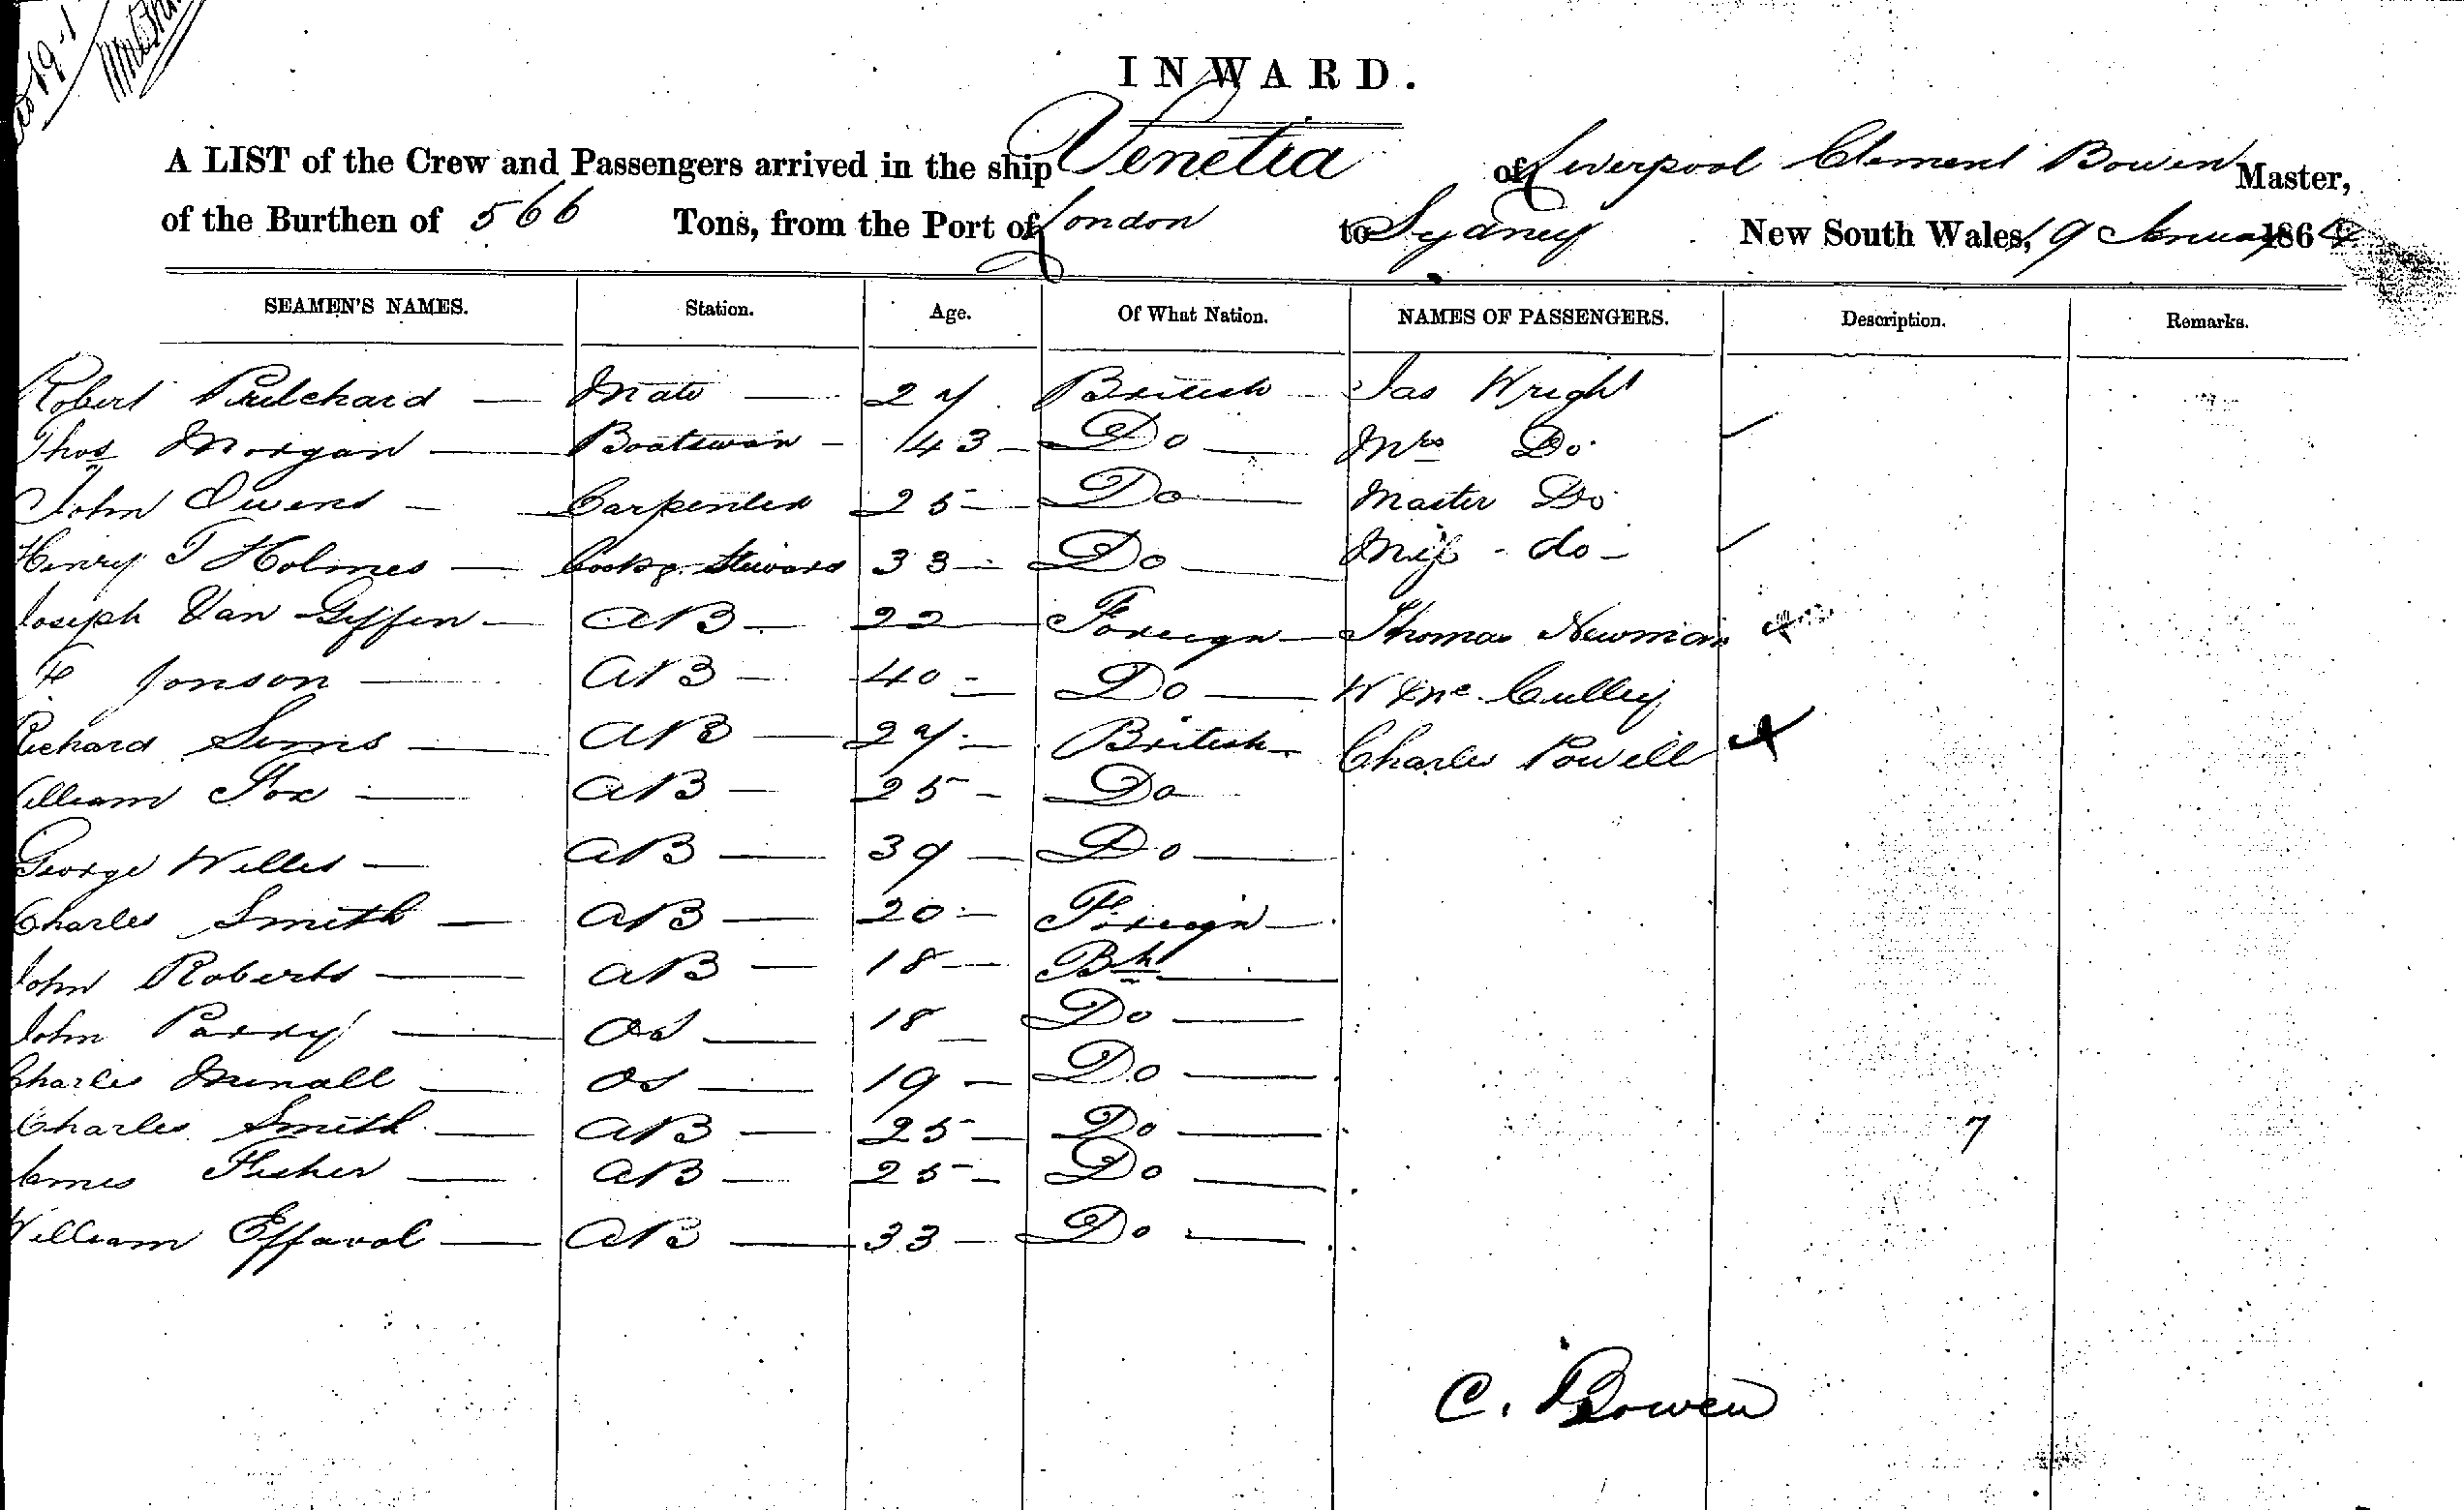 INWARD.
A LIST of the Crew and Passengers arrived in the ship Venetia of Liverpool Clement Bowen Master,
of the Burthen of 566 Tons, from the Port of London to Sydney New South Wales, 19 January 186
SEAMEN'S NAMES. Station. Age. Of What Nation. NAMES OF PASSENGERS. Description. Remarks.
Robert Pritchard — Mate — 27 British — Jas Wright
Thos Morgan — Boatswain — 43 — Do — Mrs Do
John Owens — Carpenter 25 — Do — Master Do
Henry T Holmes — Cook & Steward 33 — Do — Miss - do -
Joseph Van Geffen — AB — 22 — Foreign — Thomas Newman
Jonson — AB — 40 — Do — W Mc Culley
Richard Sims — AB — 27 — British — Charles Powell
William Fox — AB — 25 — Do
George Willis — AB — 39 — Do —
Charles Smith — AB — 20 — Foreign —
John Roberts — AB — 18 — Bh —
John Parry — OS — 18 — Do —
Charles — OS — 19 — Do —
Charles Smith — AB — 25 — Do — 7
James Fisher — AB — 25 — Do —
William Effavol — AB — 33 — Do —
C. Bowen